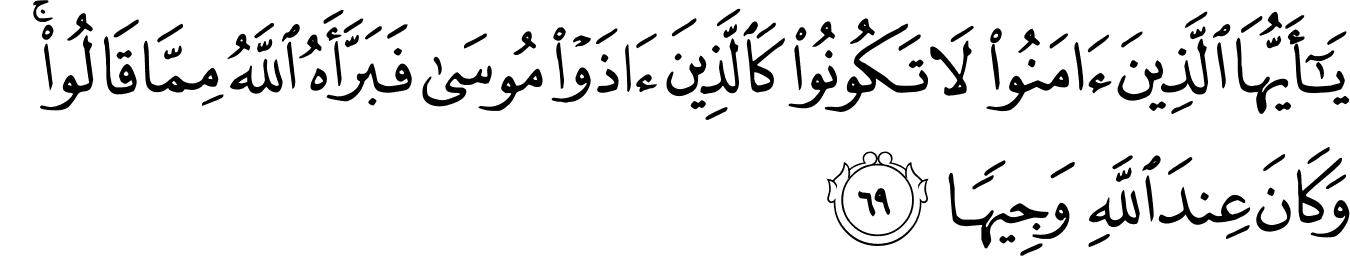 يَـٰٓأَيُّهَا ٱلَّذِينَ ءَامَنُوا۟ لَا تَكُونُوا۟ كَٱلَّذِينَ ءَاذَوْا۟ مُوسَىٰ فَبَرَّأَهُ ٱللَّهُ مِمَّا قَالُوا۟ ۚ
وَكَانَ عِندَ ٱللَّهِ وَجِيهَا ٦٩